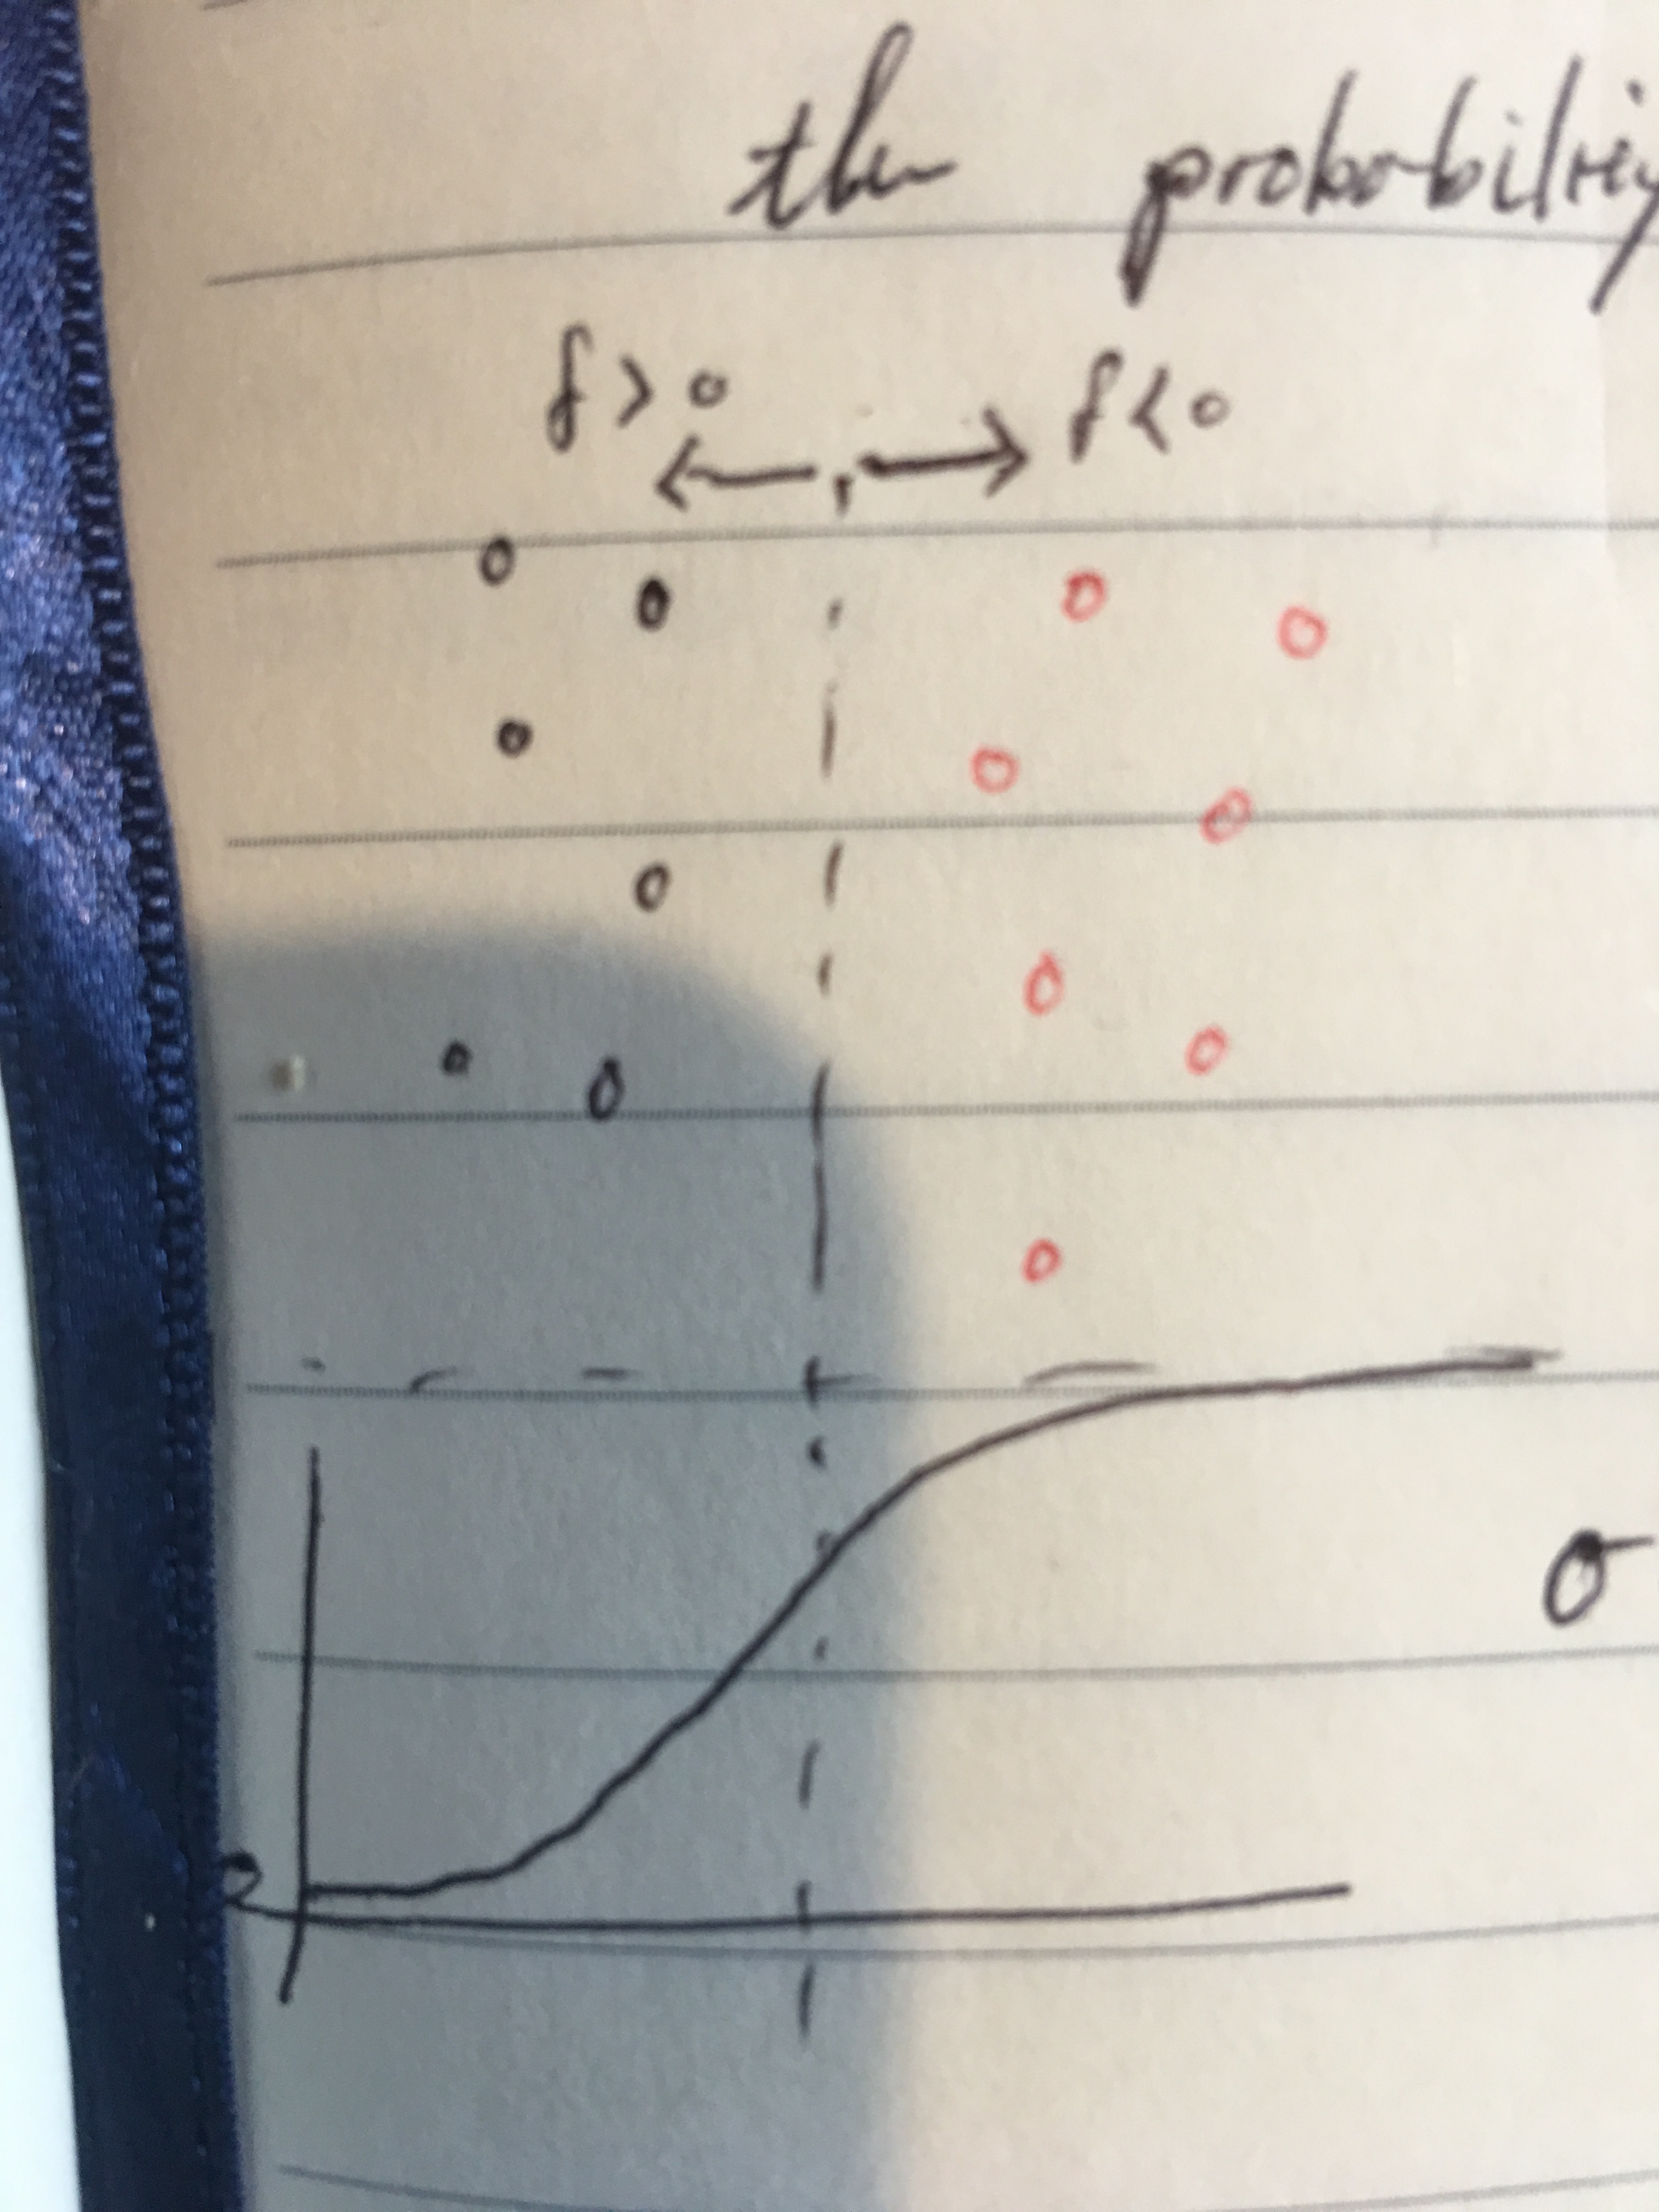 the probability
f > 0 f < 0
σ